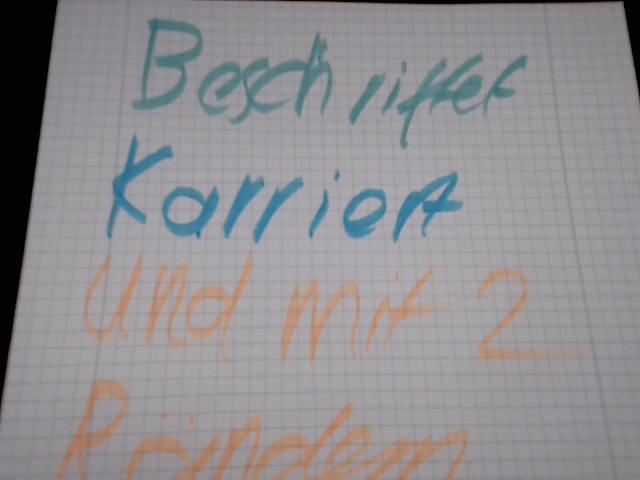 Beschriftet
Karriert
und mit 2
Rändern